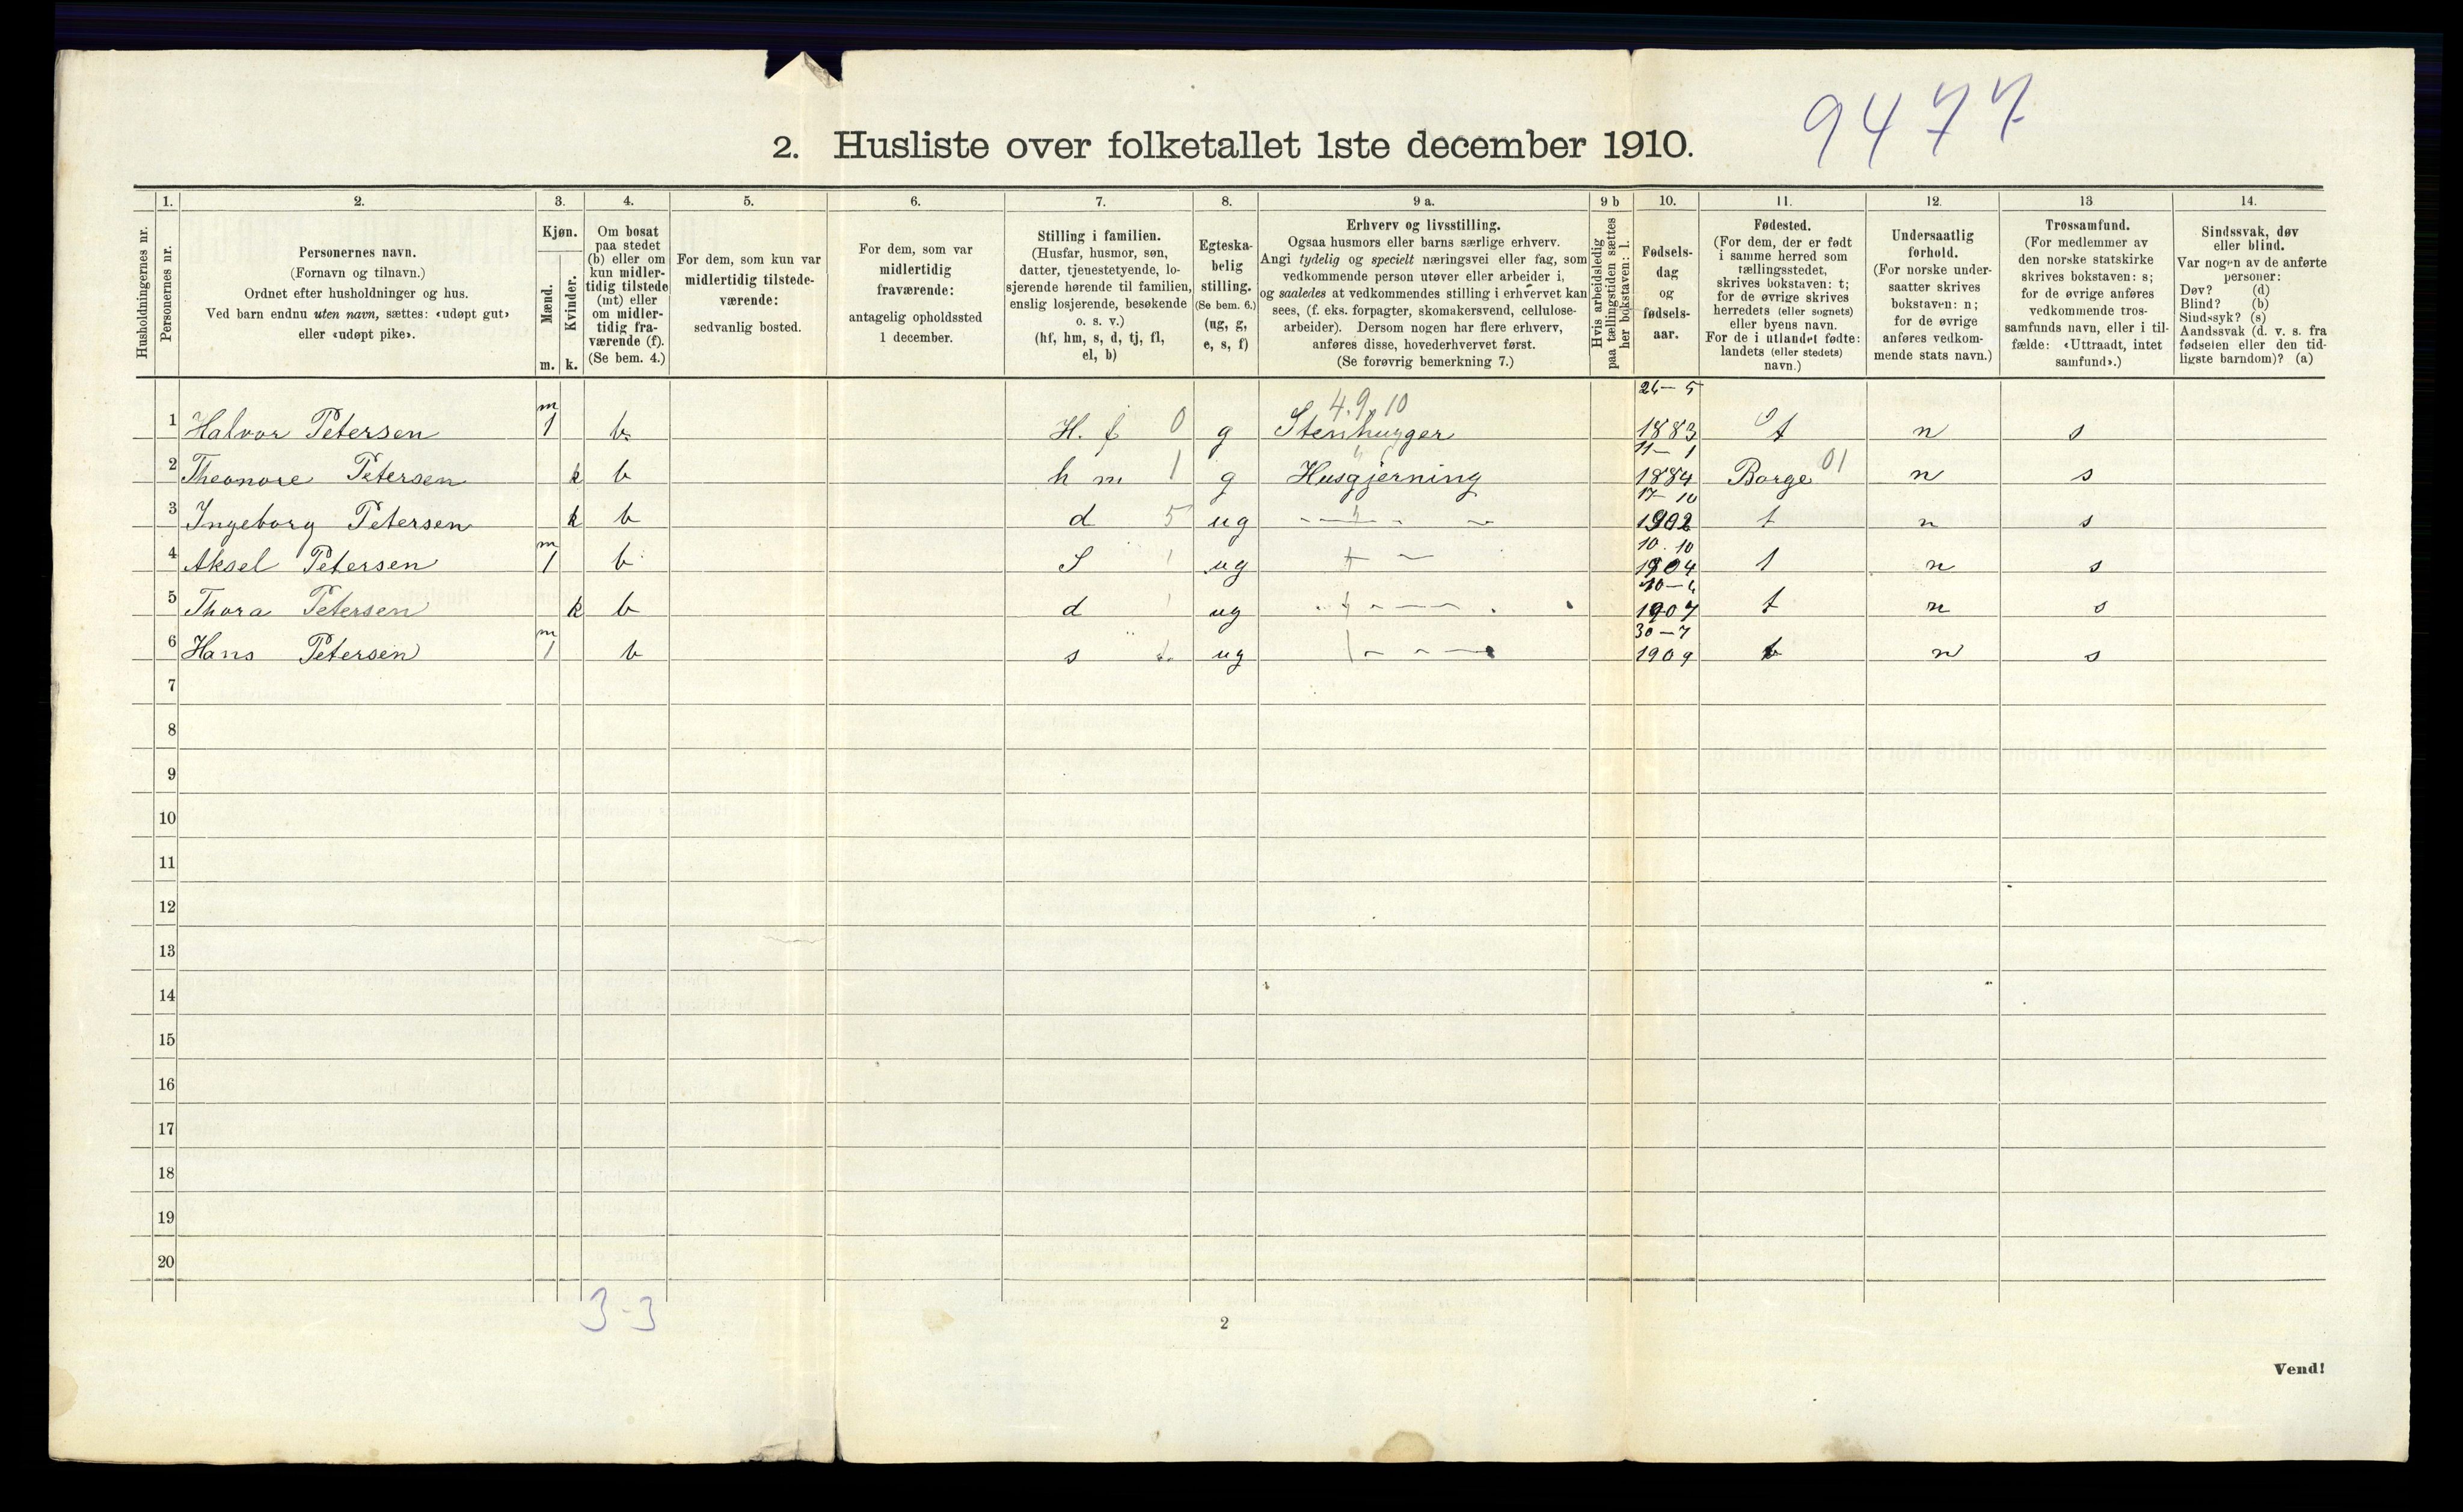 9477
2. Husliste over folketallet 1ste december 1910.
Husholdningernes nr.
1. Personernes nr.
2. Personernes navn.
(Fornavn og tilnavn.)
Ordnet efter husholdninger og hus.
Ved barn endnu uten navn, sættes: «udøpt gut»
eller «udøpt pike».
3. Kjøn.
Mænd. m.
Kvinder. k.
4. Om bosat
paa stedet
(b) eller om
kun midler-
tidig tilstede
(mt) eller
om midler-
tidig fra-
værende (f).
(Se bem. 4.)
5. For dem, som kun var
midlertidig tilstede-
værende:
sedvanlig bosted.
6. For dem, som var
midlertidig
fraværende:
antagelig opholdssted
1 december.
7. Stilling i familien.
(Husfar, husmor, søn,
datter, tjenestetyende, lo-
sjerende hørende til familien,
enslig losjerende, besøkende
o. s. v.)
(hf, hm, s, d, tj, fl,
el, b)
8. Egteska-
belig
stilling.
(Se bem. 6.)
(ug, g,
e, s, f)
9 a. Erhverv og livsstilling.
Ogsaa husmors eller barns særlige erhverv.
Angi tydelig og specielt næringsvei eller fag, som
vedkommende person utøver eller arbeider i,
og saaledes at vedkommendes stilling i erhvervet kan
sees, (f. eks. forpagter, skomakersvend, cellulose-
arbeider). Dersom nogen har flere erhverv,
anføres disse, hovederhvervet først.
(Se forøvrig bemerkning 7.)
9 b Hvis arbeidsledig
paa tællingstiden sættes
her bokstaven: l.
10. Fødsels-
dag
og
fødsels-
aar.
11. Fødested.
(For dem, der er født
i samme herred som
tællingsstedet,
skrives bokstaven: t;
for de øvrige skrives
herredets (eller sognets)
eller byens navn.
For de i utlandet fødte:
landets (eller stedets)
navn.)
12. Undersaatlig
forhold.
(For norske under-
saatter skrives
bokstaven: n;
for de øvrige
anføres vedkom-
mende stats navn.)
13 Trossamfund.
(For medlemmer av
den norske statskirke
skrives bokstaven: s;
for de øvrige anføres
vedkommende tros-
samfunds navn, eller i til-
fælde: «Uttraadt, intet
samfund».)
14. Sindssvak, døv
eller blind.
Var nogen av de anførte
personer:
Døv? (d)
Blind? (b)
Sindssyk? (s)
Aandssvak (d. v. s. fra
fødselen eller den tid-
ligste barndom)? (a)
1 Halvor Petersen m 1 b. H. f 0 g 4.9.10 Stenhugger 1883 t n s
2 Theonore Petersen k b h m 1 g Husgjerning 11-1 1884 Borge 01 n s
3 Ingeborg Petersen k b d 5 ug 17-10 1902 t n s
4 Aksel Petersen m 1 b S 1 ug 10.10 1904 t n s
5 Thora Petersen k b d 1 ug 1907 t n s
6 Hans Petersen m 1 b s ug 30-7 1909 t n s
7
8
9
10
11
12
13
14
15
16
17
18
19
20
3-3
2
Vend!